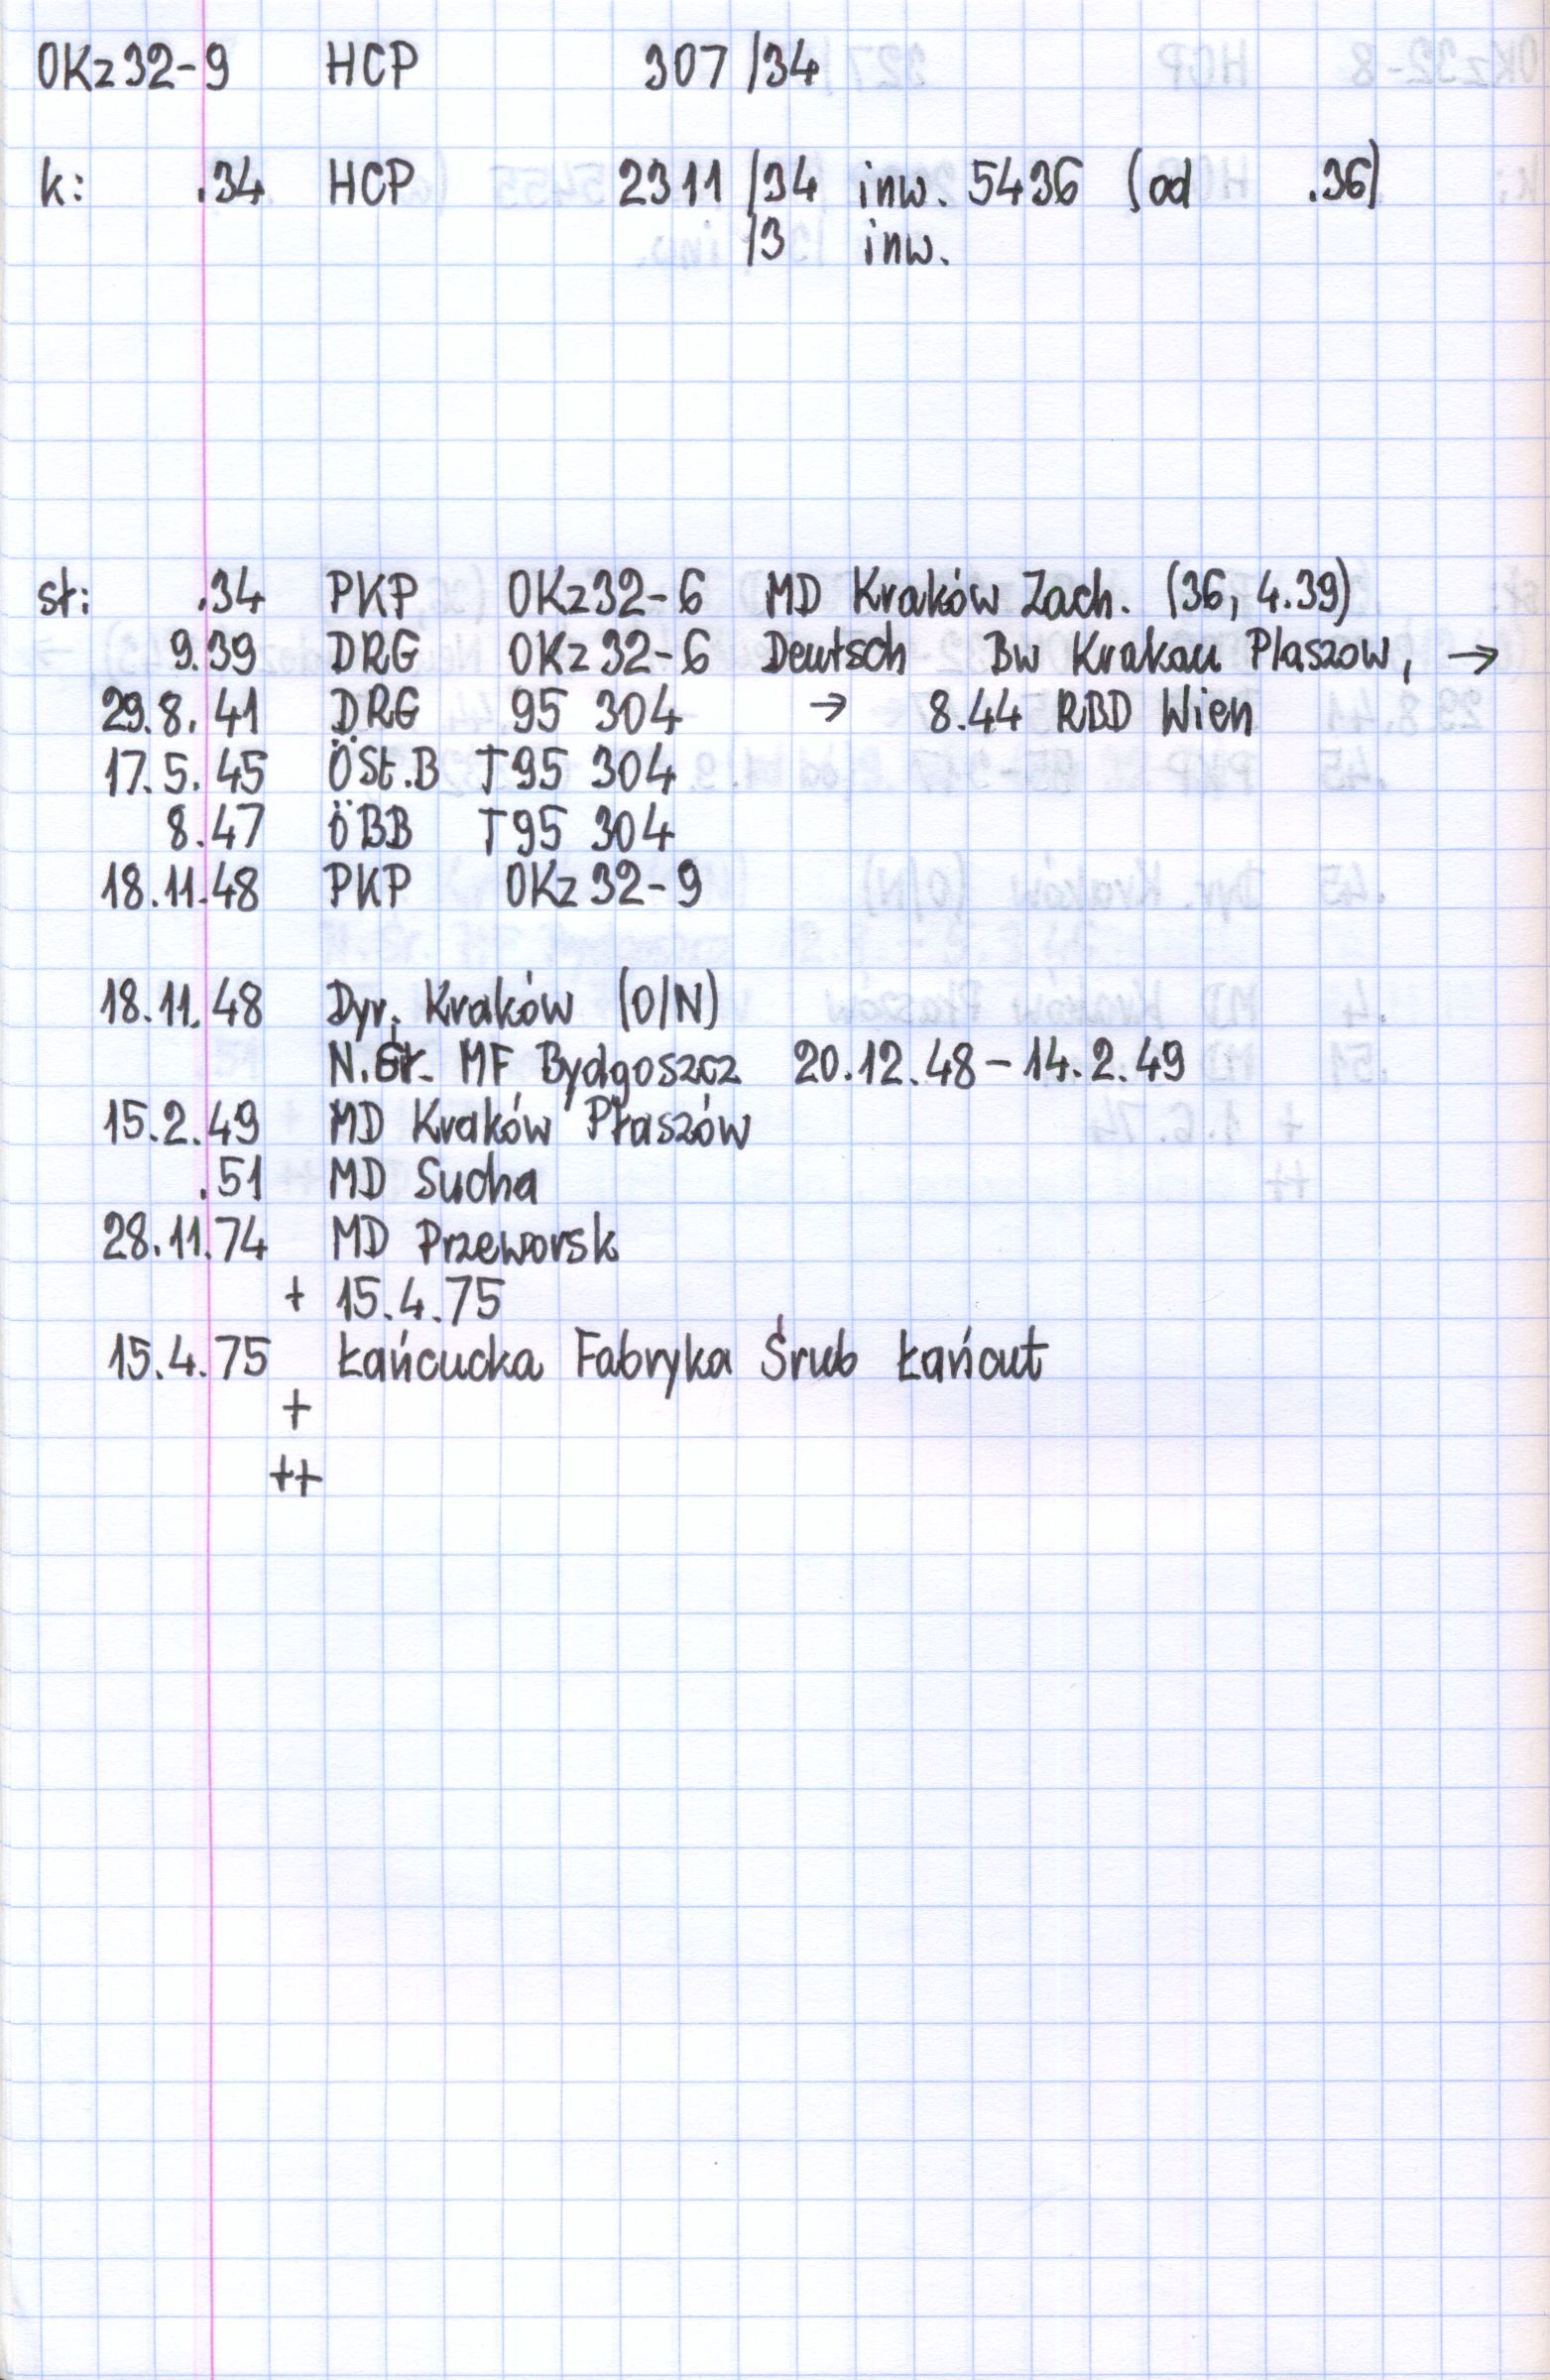 OKz32-9 HCP 307/34
k: .34 HCP 2311/34 inw. 5436 (od .36)
/3 inw.
st: .34 PKP OKz32-6 MD Kraków Zach. (36, 4.39)
9.39 DRG OKz32-6 Deutsch Bw Krakau Plaszow, →
29.8.41 DRG 95 304 → 8.44 RBD Wien
17.5.45 ÖSt.B T95 304
8.47 ÖBB T95 304
18.11.48 PKP OKz32-9
18.11.48 Dyr. Kraków (O/N)
N.Gł. MF Bydgoszcz 20.12.48-14.2.49
15.2.49 MD Kraków Płaszów
.51 MD Sucha
28.11.74 MD Przeworsk
+ 15.4.75
15.4.75 Łańcucka Fabryka Śrub Łańcut
+
++